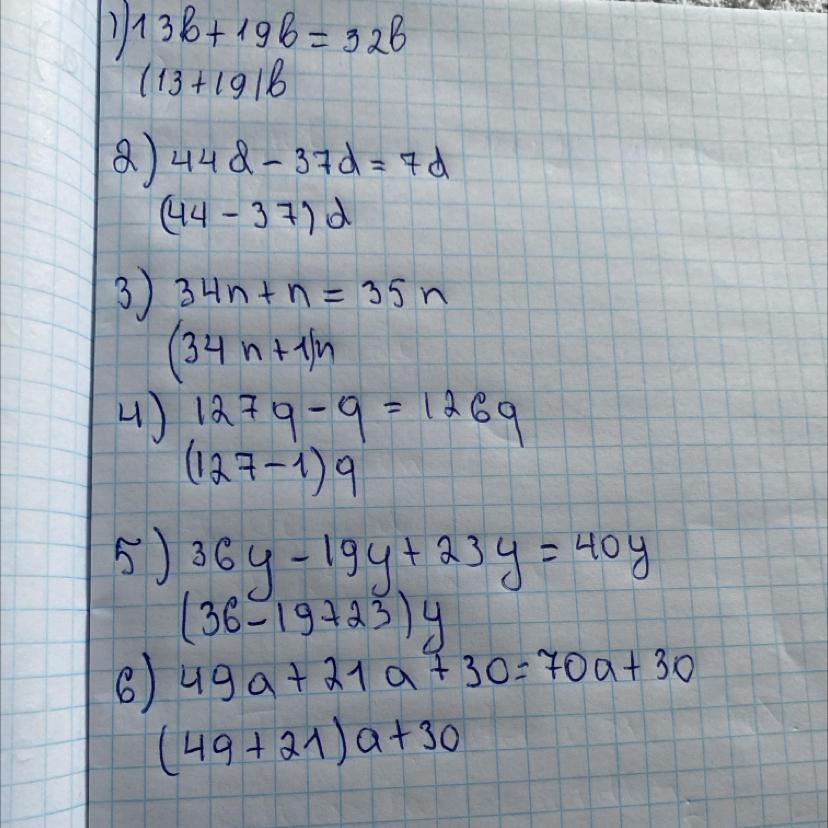 1) 13b + 19b = 32b
(13 + 19)b
2) 44d - 37d = 7d
(44 - 37) d
3) 34n + n = 35n
(34n + 1)n
4) 127q - q = 126q
(127 - 1) q
5) 36y - 19y + 23y = 40y
(36 - 19 + 23) y
6) 49a + 21a + 30 = 70a + 30
(49 + 21) a + 30